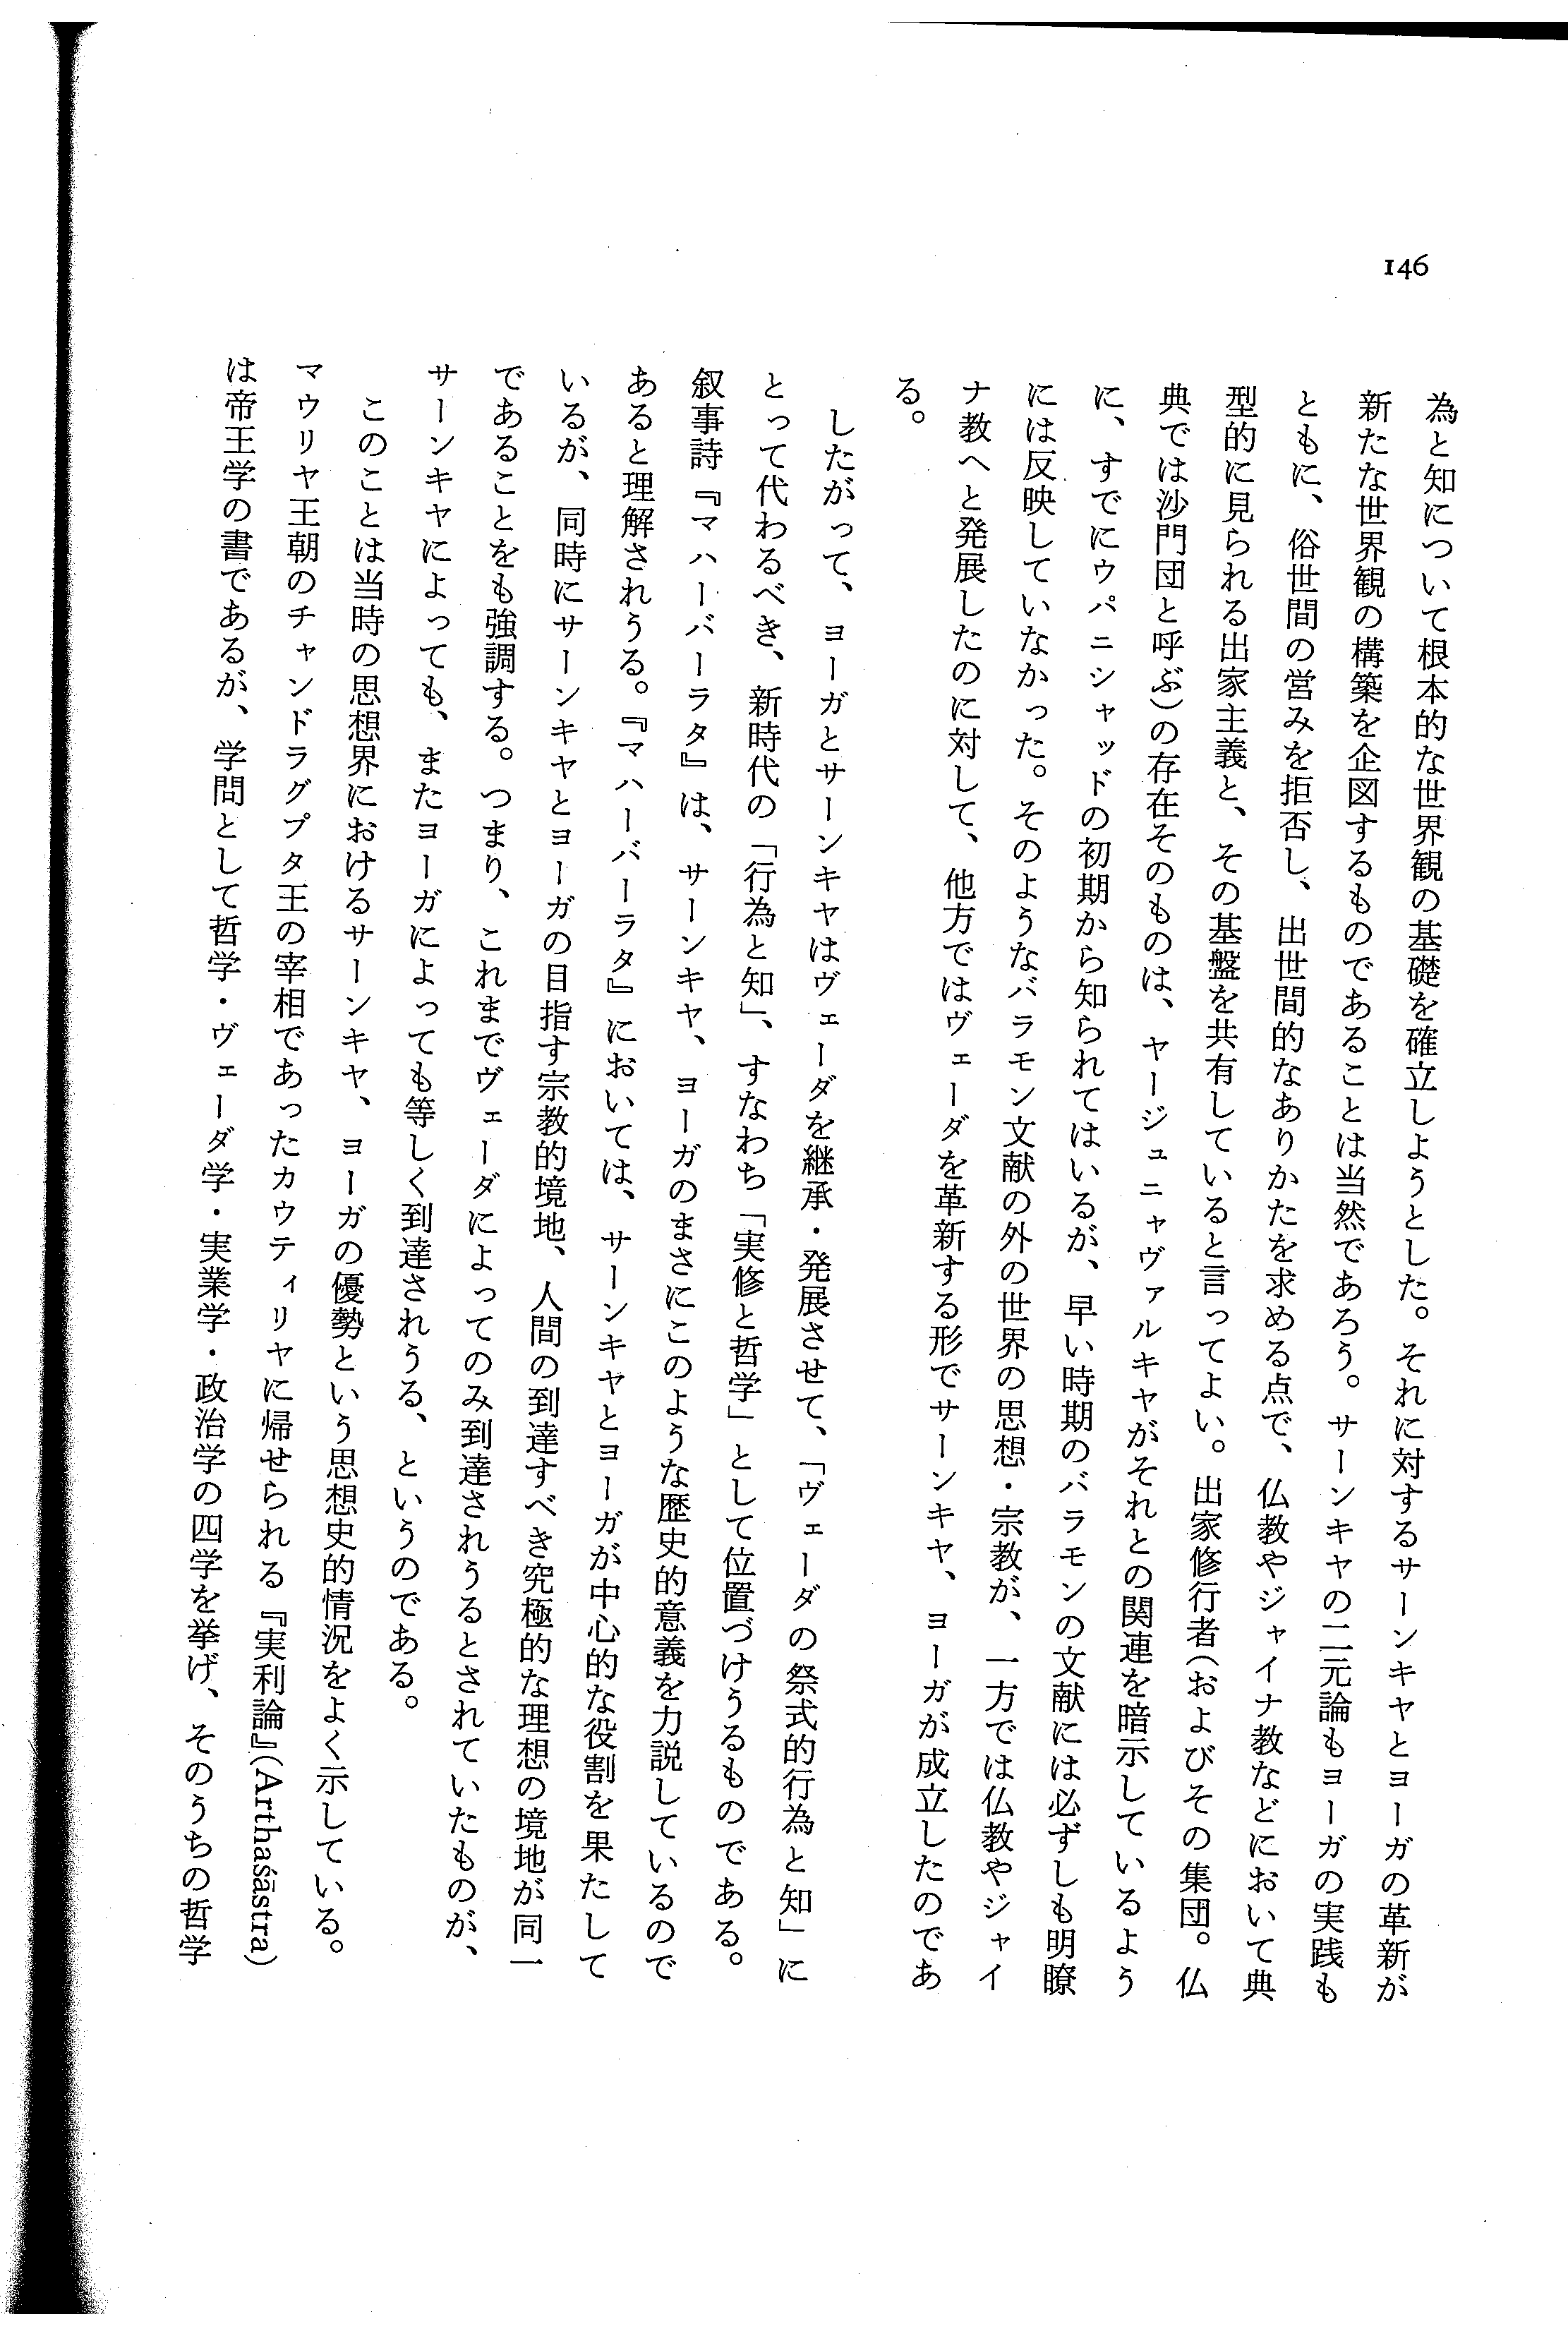 146
為と知について根本的な世界観の基礎を確立しようとした。それに対するサーンキヤとヨーガの革新が
新たな世界観の構築を企図するものであることは当然であろう。サーンキヤの二元論もヨーガの実践も
ともに、俗世間の営みを拒否し、出世間的なありかたを求める点で、仏教やジャイナ教などにおいて典
型的に見られる出家主義と、その基盤を共有していると言ってよい。出家修行者(およびその集団。仏
典では沙門団と呼ぶ)の存在そのものは、ヤージュニャヴァルキヤがそれとの関連を暗示しているよう
に、すでにウパニシャッドの初期から知られてはいるが、早い時期のバラモンの文献には必ずしも明瞭
には反映していなかった。そのようなバラモン文献の外の世界の思想・宗教が、一方では仏教やジャイ
ナ教へと発展したのに対して、他方ではヴェーダを革新する形でサーンキヤ、ヨーガが成立したのであ
る。
したがって、ヨーガとサーンキヤはヴェーダを継承・発展させて、「ヴェーダの祭式的行為と知」に
とって代わるべき、新時代の「行為と知」、すなわち「実修と哲学」として位置づけうるものである。
叙事詩『マハーバーラタ』は、サーンキヤ、ヨーガのまさにこのような歴史的意義を力説しているので
あると理解されうる。『マハーバーラタ』においては、サーンキヤとヨーガが中心的な役割を果たして
いるが、同時にサーンキヤとヨーガの目指す宗教的境地、人間の到達すべき究極的な理想の境地が同一
であることをも強調する。つまり、これまでヴェーダによってのみ到達されうるとされていたものが、
サーンキヤによっても、またヨーガによっても等しく到達されうる、というのである。
このことは当時の思想界におけるサーンキヤ、ヨーガの優勢という思想史的情況をよく示している。
マウリヤ王朝のチャンドラグプタ王の宰相であったカウティリヤに帰せられる『実利論』(Arthaśāstra)
は帝王学の書であるが、学問として哲学・ヴェーダ学・実業学・政治学の四学を挙げ、そのうちの哲学